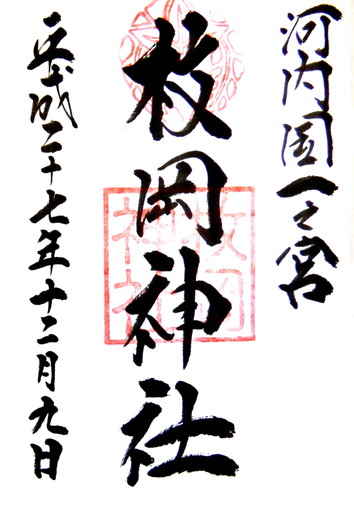 河内国一之宮
枚岡神社
平成二十七年十二月九日